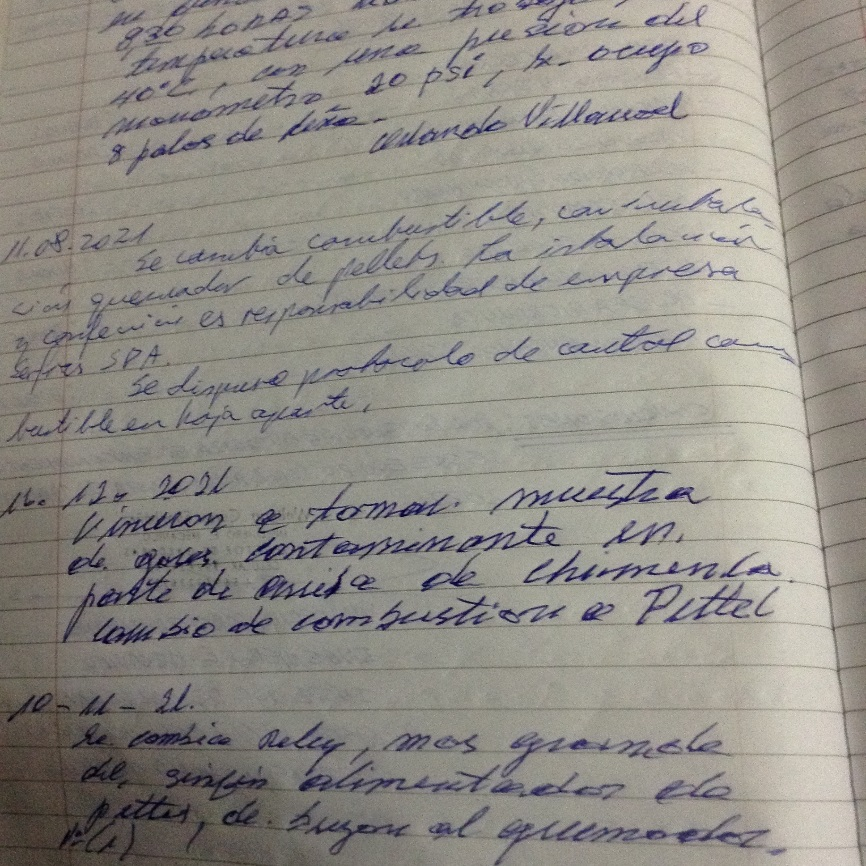 8,30 horas
temperatura de trabajo
40°C, con una presion del
manometro 20 psi, se ocupo
8 palos de leña.
Orlando Villarroel
11.08.2021
Se cambia combustible, con instala-
ción quemador de pellets. La instalación
y confección es responsabilidad de empresa
SPA.
Se dispuso protocolo de control com
bustible en hoja aparte.
16. 12. 2021
Vinieron a tomar. muestra
de gases contaminante en.
parte de arriba de chimenea.
cambio de combustion a Pettel
10-11-21.
Se cambia Reley, mas grande
del, sinfin alimentador de
pettes, de buzon al quemador.
N=(1)